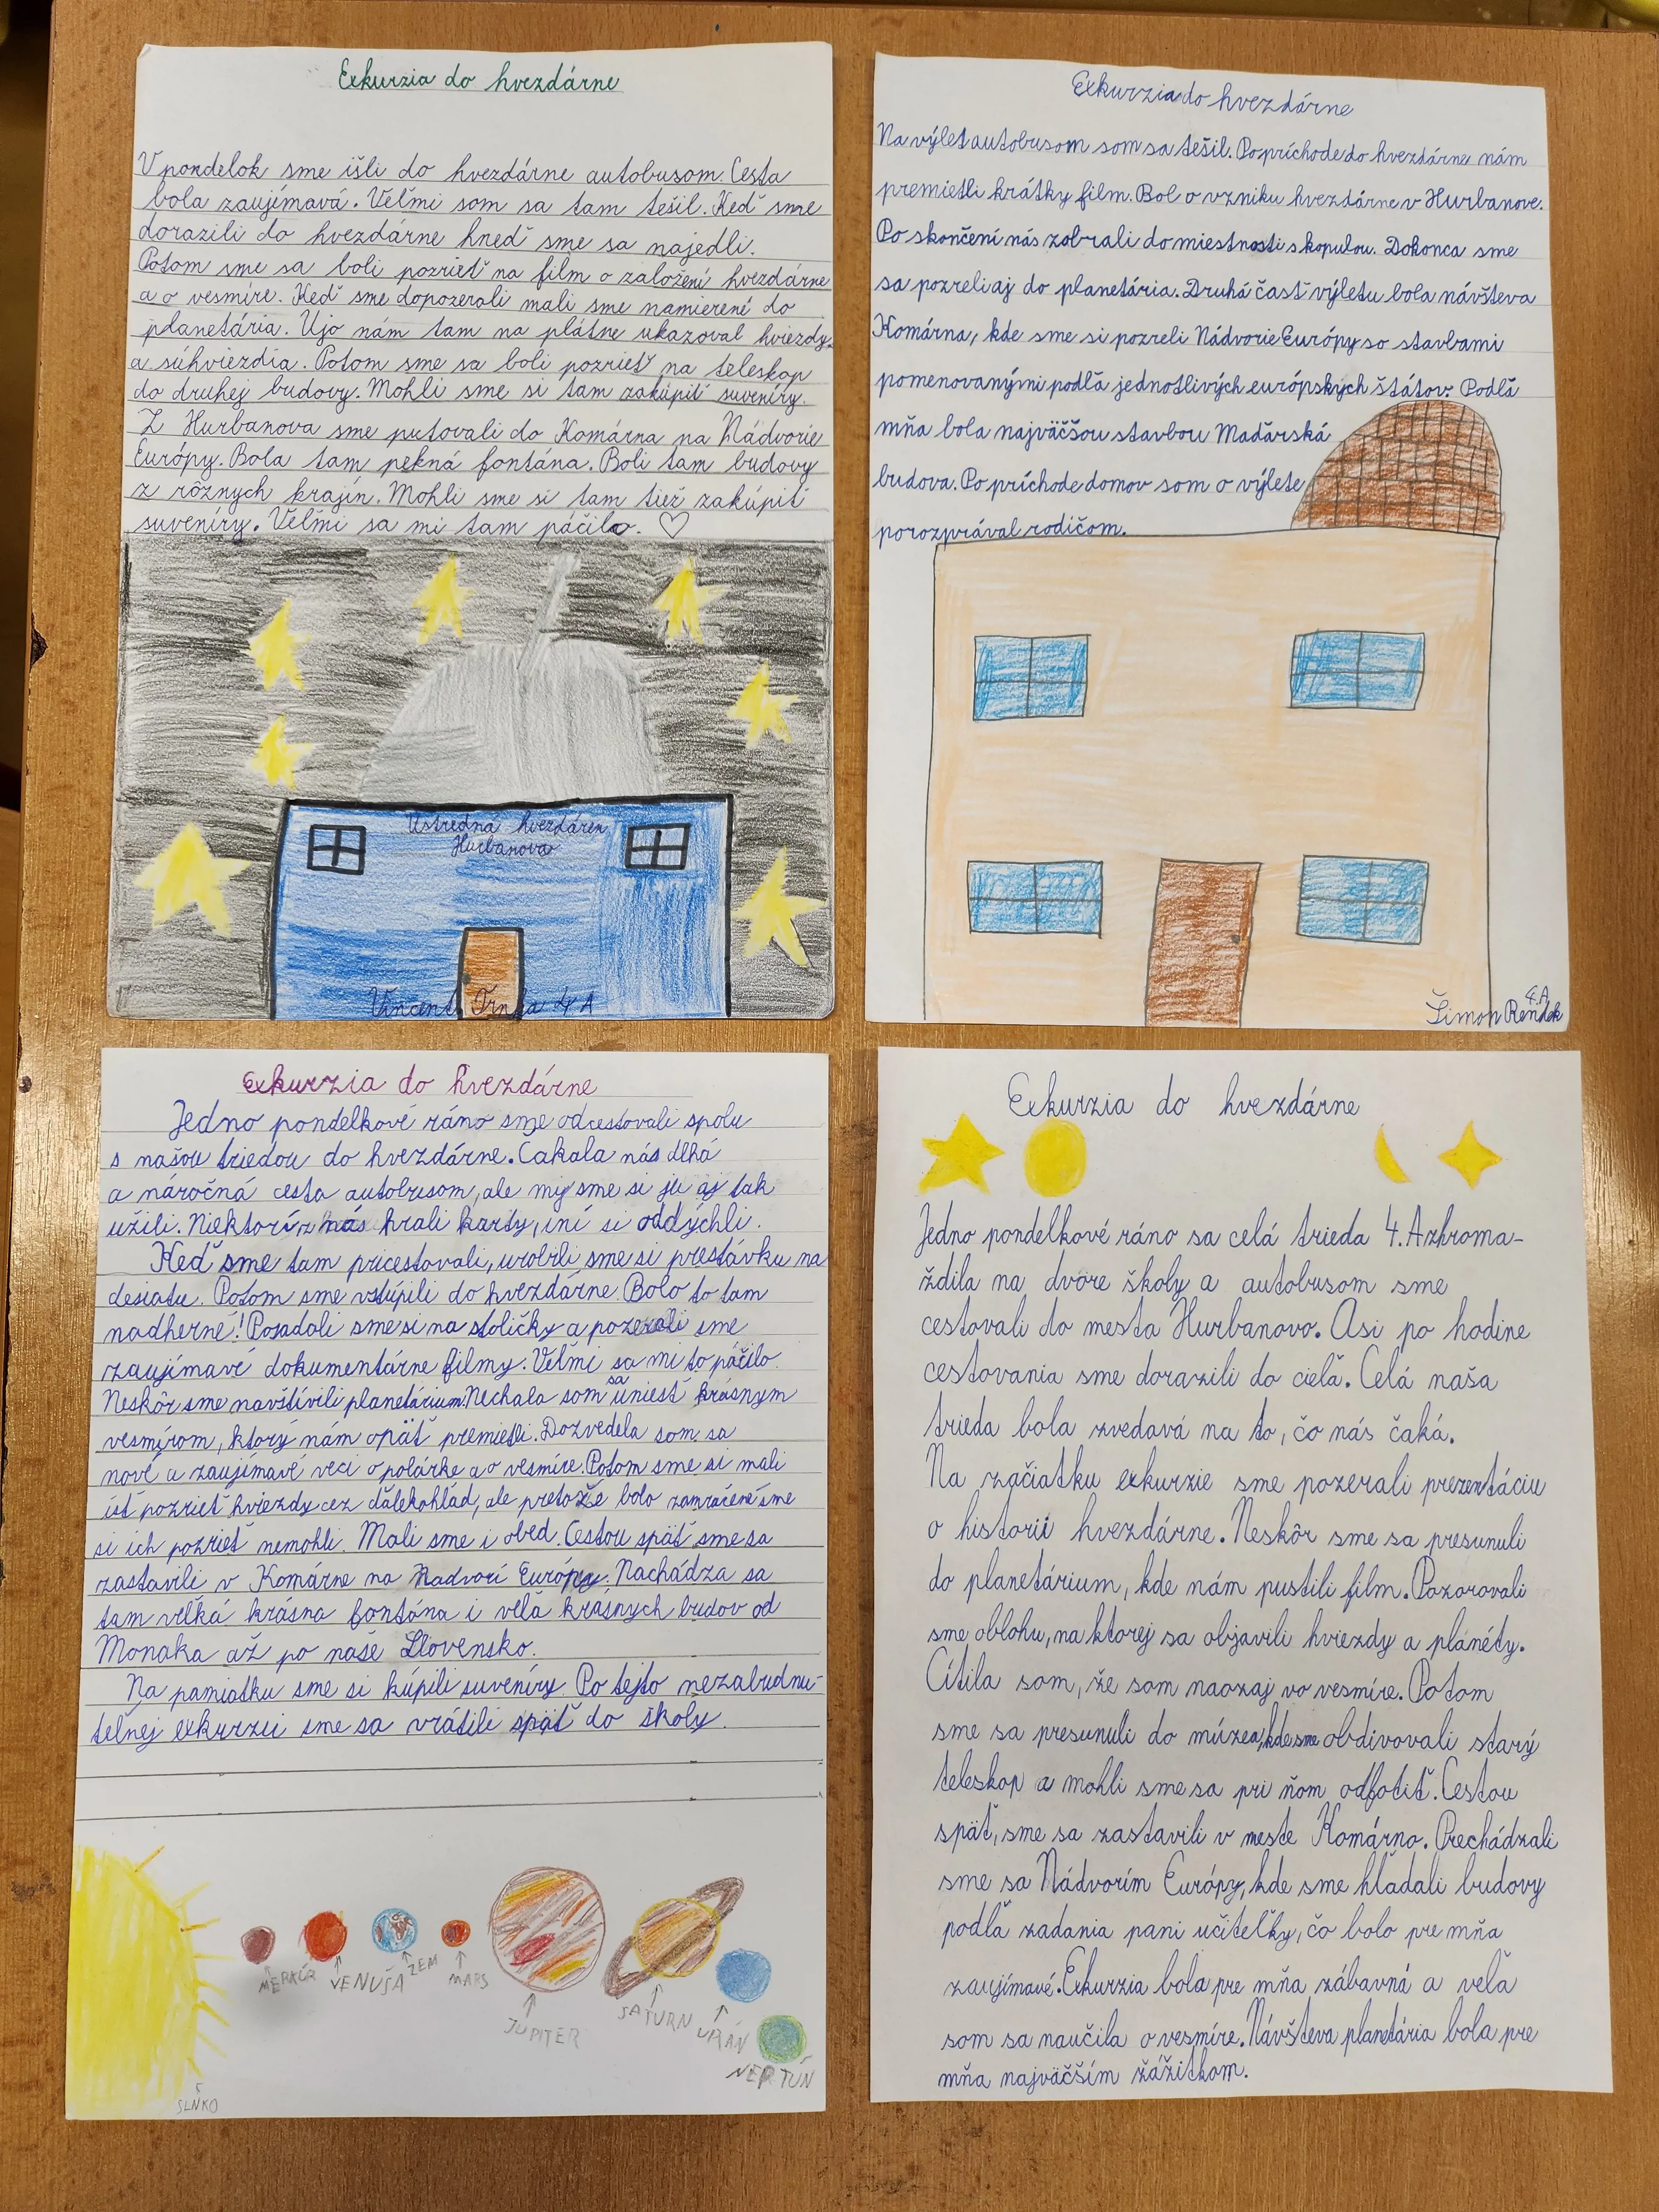 Exkurzia do hvezdárne
V pondelok sme išli do hvezdárne autobusom. Cesta
bola zaujímavá. Veľmi som sa tam tešil. Keď sme
dorazili do hvezdárne hneď sme sa najedli.
Potom sme sa boli pozrieť na film o založení hvezdárne
a o vesmíre. Keď sme dopozerali mali sme namierené do
planetária. Ujo nám tam na plátne ukazoval hviezdy
a súhviezdia. Potom sme sa boli pozrieť na teleskop
do druhej budovy. Mohli sme si tam zakúpiť suveníry.
Z Hurbanova sme putovali do Komárna na Nádvorie
Európy. Bola tam pekná fontána. Boli tam budovy
z rôznych krajín. Mohli sme si tam tiež zakúpiť
suveníry. Veľmi sa mi tam páčilo. ♡
Ústredná hvezdáreň
Hurbanovo
Vincent 4 A
Exkurzia do hvezdárne
Na výlet autobusom som sa tešil. Po príchode do hvezdárne nám
premietli krátky film. Bol o vzniku hvezdárne v Hurbanove.
Po skončení nás zobrali do miestnosti s kopulou. Dokonca sme
sa pozreli aj do planetária. Druhá časť výletu bola návšteva
Komárna, kde sme si pozreli Nádvorie Európy so stavbami
pomenovanými podľa jednotlivých európskych štátov. Podľa
mňa bola najväčšou stavbou Maďarská
budova. Po príchode domov som o výlete
porozprával rodičom.
4.A
Šimon Rendek
Exkurzia do hvezdárne
Jedno pondelkové ráno sme odcestovali spolu
s našou triedou do hvezdárne. Čakala nás dlhá
a náročná cesta autobusom, ale my sme si ju aj tak
užili. Niektorí z nás hrali karty, iní si oddýchli.
Keď sme tam pricestovali, urobili sme si prestávku na
desiatu. Potom sme vstúpili do hvezdárne. Bolo to tam
nadherné! Posadali sme si na stoličky a pozerali sme
zaujímavé dokumentárne filmy. Veľmi sa mi to páčilo.
Neskôr sme navštívili planetárium. Nechala som sa uniesť krásnym
vesmírom, ktorý nám opäť premietli. Dozvedela som sa
nové a zaujímavé veci o polárke a o vesmíre. Potom sme si mali
ísť pozrieť hviezdy cez ďalekohľad, ale pretože bolo zamračené sme
si ich pozrieť nemohli. Mali sme i obed. Cestou späť sme sa
zastavili v Komárne na Nadvorí Európy. Nachádza sa
tam veľká krásna fontána i veľa krásnych budov od
Monaka až po naše Slovensko.
Na pamiatku sme si kúpili suveníry. Po tejto nezabudnu-
teľnej exkurzii sme sa vrátili späť do školy.
MERKÚR
VENUŠA
ZEM
MARS
JUPITER
SATURN
URÁN
NEPTÚN
SLNKO
Exkurzia do hvezdárne
Jedno pondelkové ráno sa celá trieda 4. A zhroma-
ždila na dvore školy a autobusom sme
cestovali do mesta Hurbanovo. Asi po hodine
cestovania sme dorazili do cieľa. Celá naša
trieda bola zvedavá na to, čo nás čaká.
Na začiatku exkurzie sme pozerali prezentáciu
o histórii hvezdárne. Neskôr sme sa presunuli
do planetárium, kde nám pustili film. Pozorovali
sme oblohu, na ktorej sa objavili hviezdy a planéty.
Cítila som, že som naozaj vo vesmíre. Potom
sme sa presunuli do múzea, kde sme obdivovali starý
teleskop a mohli sme sa pri ňom odfotiť. Cestou
späť, sme sa zastavili v meste Komárno. Prechádzali
sme sa Nádvorím Európy, kde sme hľadali budovy
podľa zadania pani učiteľky, čo bolo pre mňa
zaujímavé. Exkurzia bola pre mňa zábavná a veľa
som sa naučila o vesmíre. Návšteva planetária bola pre
mňa najväčším zážitkom.